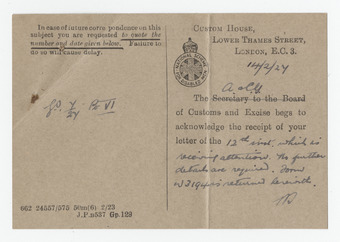 In case of future correspondence on this
subject you are requested to quote the
number and date given below. Failure to
do so will cause delay.
CUSTOM HOUSE,
LOWER THAMES STREET,
LONDON, E.C. 3.
14/2/24
The Secretary to the Board
of Customs and Excise begs to
acknowledge the receipt of your
letter of the 12th inst. which is
receiving attention. No further
details are required. Form
is returned herewith.
662 24557/575 50m(6) 2/23
J.P. Gp.128